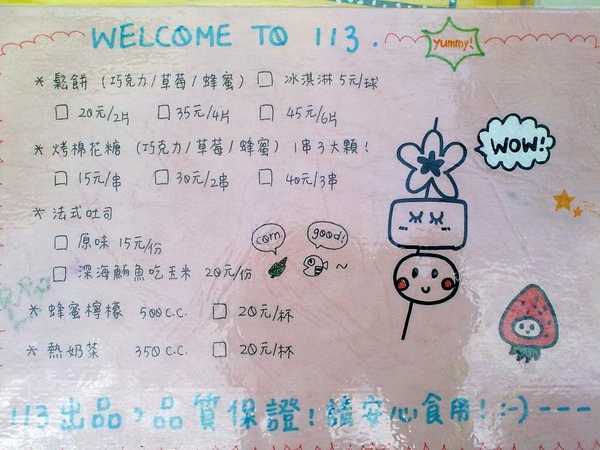 WELCOME TO 113.
yummy!
* 鬆餅 (巧克力/草莓/蜂蜜) □ 冰淇淋 5元/球
□ 20元/2片 □ 35元/4片 □ 45元/6片
* 烤棉花糖 (巧克力/草莓/蜂蜜) 1串3大顆!
□ 15元/串 □ 30元/2串 □ 40元/3串
WOW!
* 法式吐司
□ 原味 15元/份
corn good!
□ 深海鮪魚吃玉米 20元/份
* 蜂蜜檸檬 500c.c. □ 20元/杯
* 熱奶茶 350c.c. □ 20元/杯
113出品,品質保證!請安心食用!:-)---